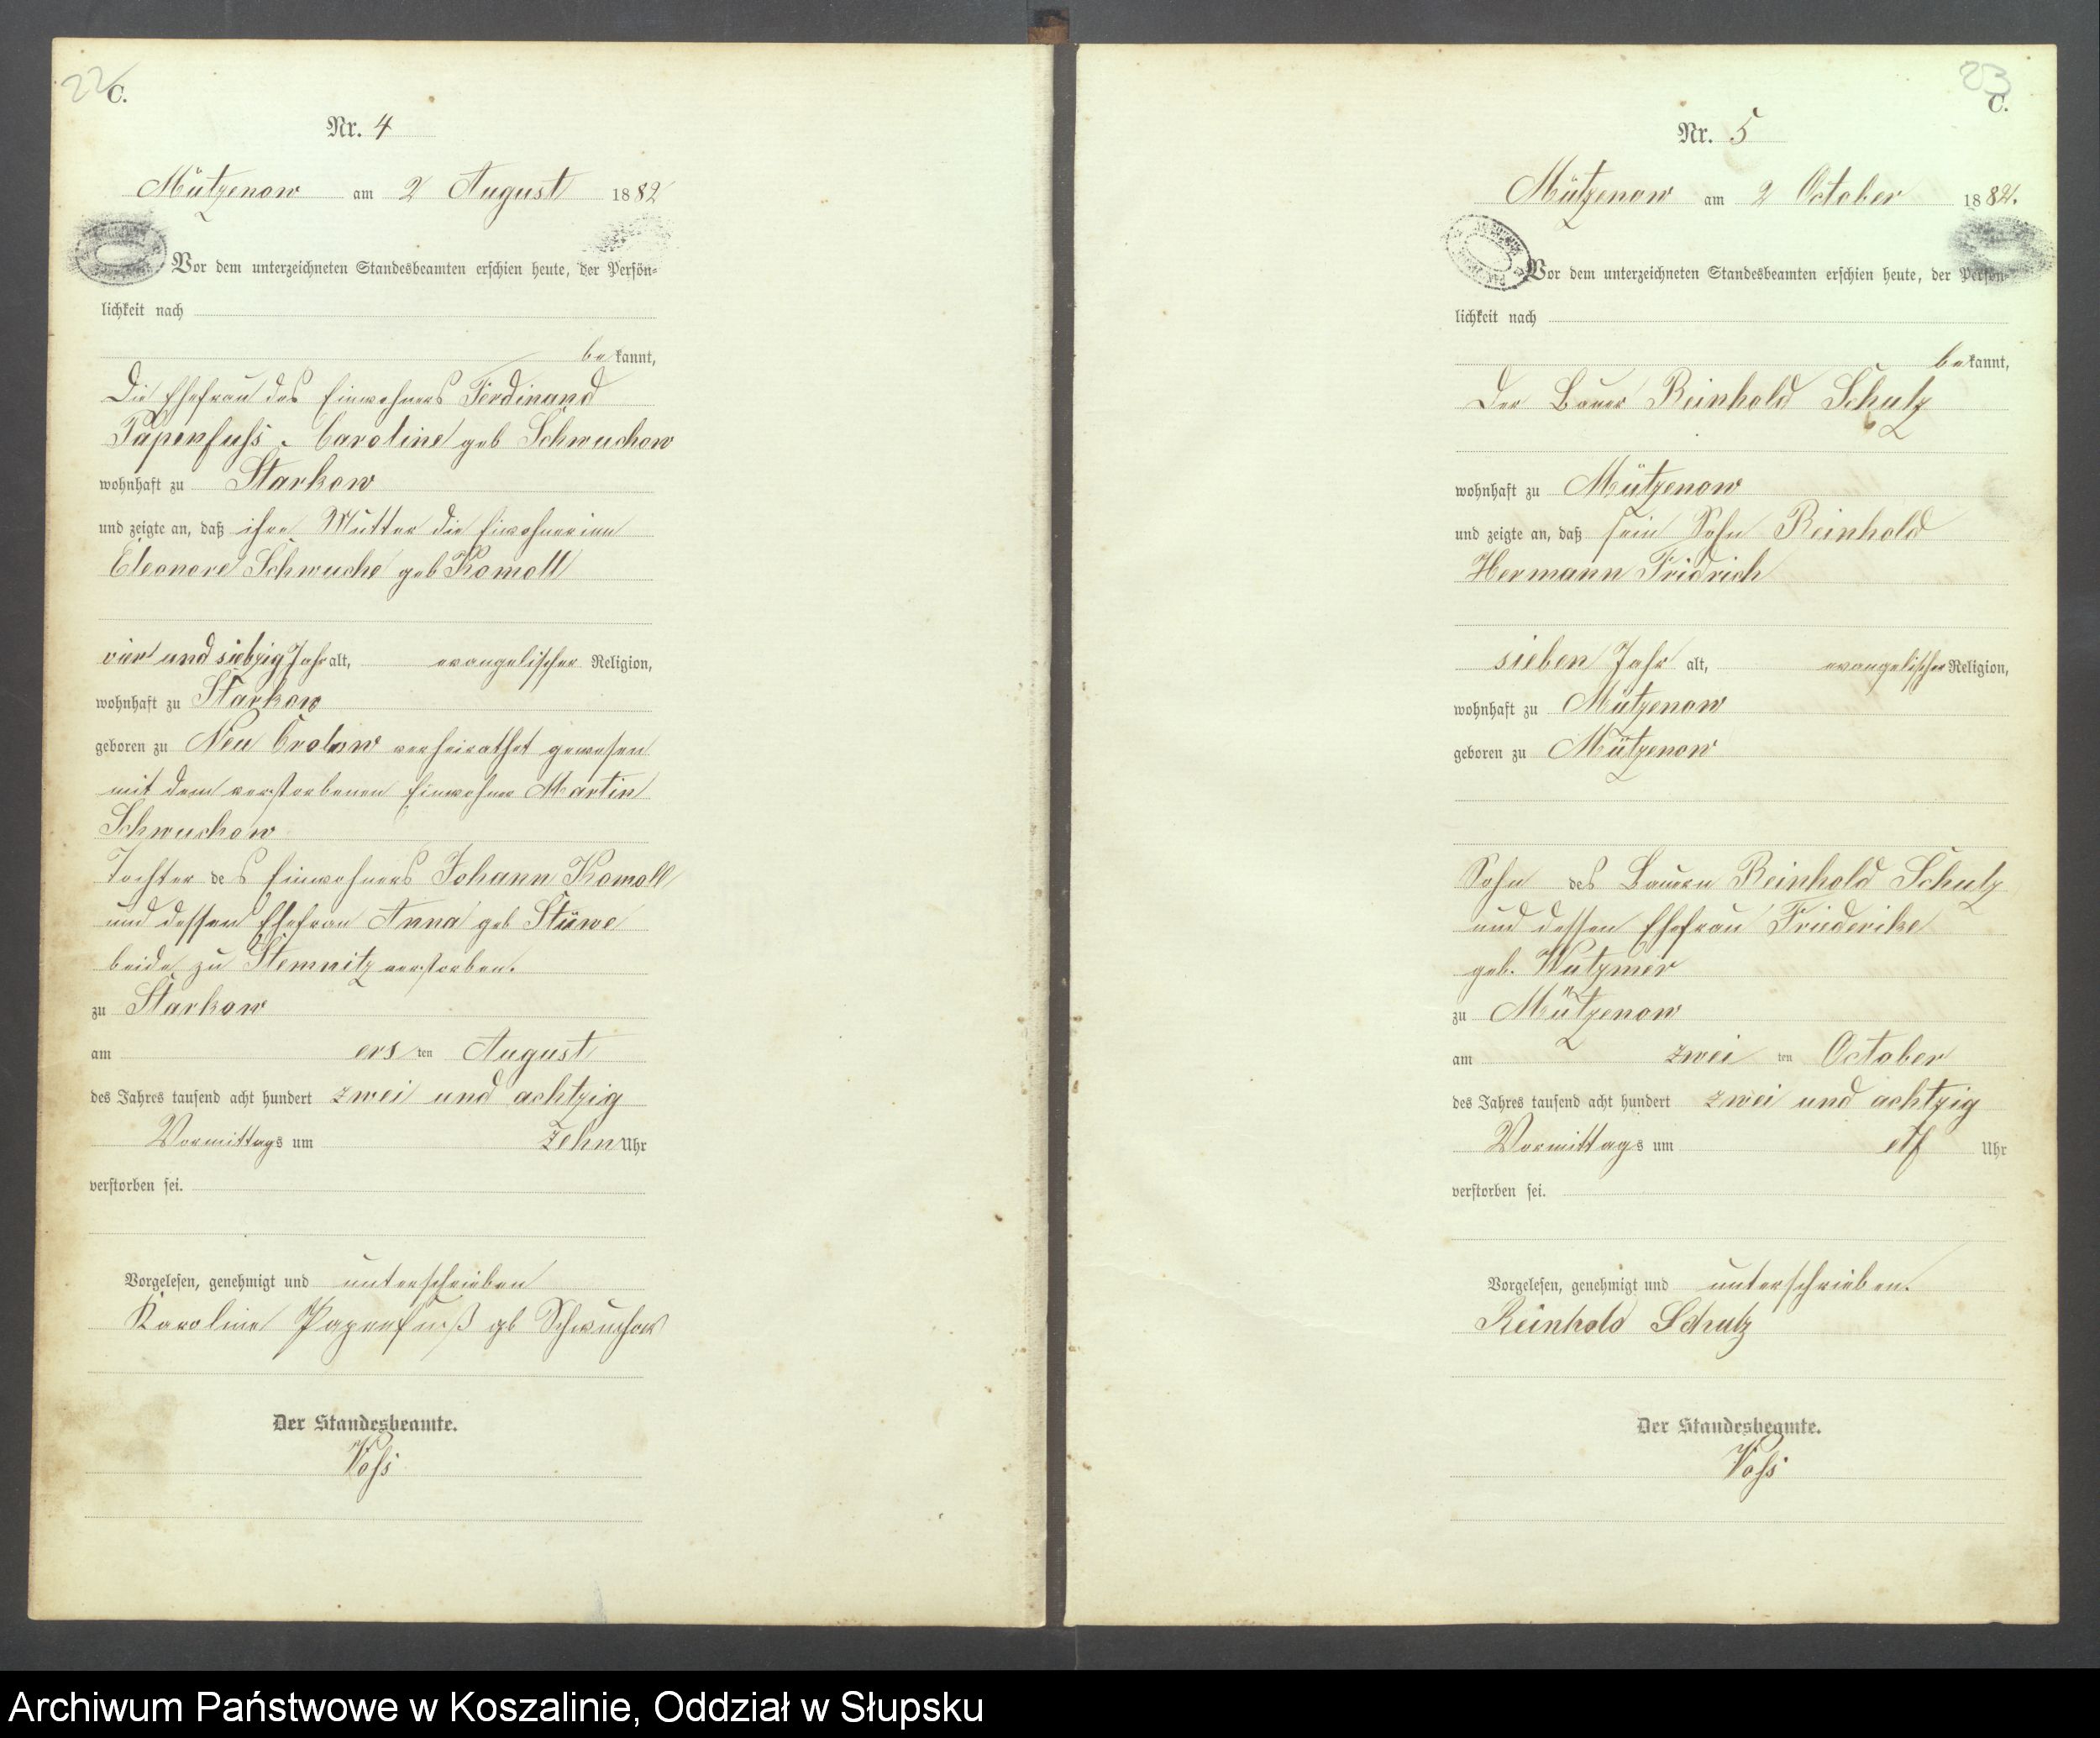 22
C.
Nr. 4
Mützenow am 2 August 1882
Vor dem unterzeichneten Standesbeamten erschien heute, der Persön-
lichkeit nach
bekannt,
Die Ehefrau des Einwohners Ferdinand
Papenfuhs, Caroline geb Schwuchow
wohnhaft zu Starkow
und zeigte an, daß ihre Mutter die Eiwohnerinn
Eleonore Schwuche geb Komoll
vier und siebzig Jahr alt, evangelischer Religion,
wohnhaft zu Starkow
geboren zu Neu verheirathet gewesen
mit dem verstorbenen Einwohner Martin
Schwuchow
Tochter des Einwohners Johann Komoll
und dessen Ehefrau Anna geb Stüwe
beide zu Stemnitz verstorben.
zu Starkow
am ersten August
des Jahres tausend acht hundert zwei und achtzig
Vormittags um Zehn Uhr
verstorben sei.
Vorgelesen, genehmigt und unterschrieben
Karoline Papenfuß gb Schwuchow
Der Standesbeamte.
Vohs
23
C.
Nr. 5
Mützenow am 2 October 1882.
Vor dem unterzeichneten Standesbeamten erschien heute, der Persön-
lichkeit nach
bekannt,
Der Bauer Reinhold Schulz
wohnhaft zu Mützenow
und zeigte an, daß sein Sohn Reinhold
Hermann Fridrich
sieben Jahr alt, evangelischer Religion,
wohnhaft zu Mützenow
geboren zu Mützenow
Sohn des Bauern Reinhold Schulz
und dessen Ehefrau Friederike
geb. Wutzmer
zu Mützenow
am zweiten October
des Jahres tausend acht hundert zwei und achtzig
Vormittags um elf Uhr
verstorben sei.
Vorgelesen, genehmigt und unterschrieben.
Reinhold Schulz
Der Standesbeamte.
Vohs
Archiwum Państwowe w Koszalinie, Oddział w Słupsku